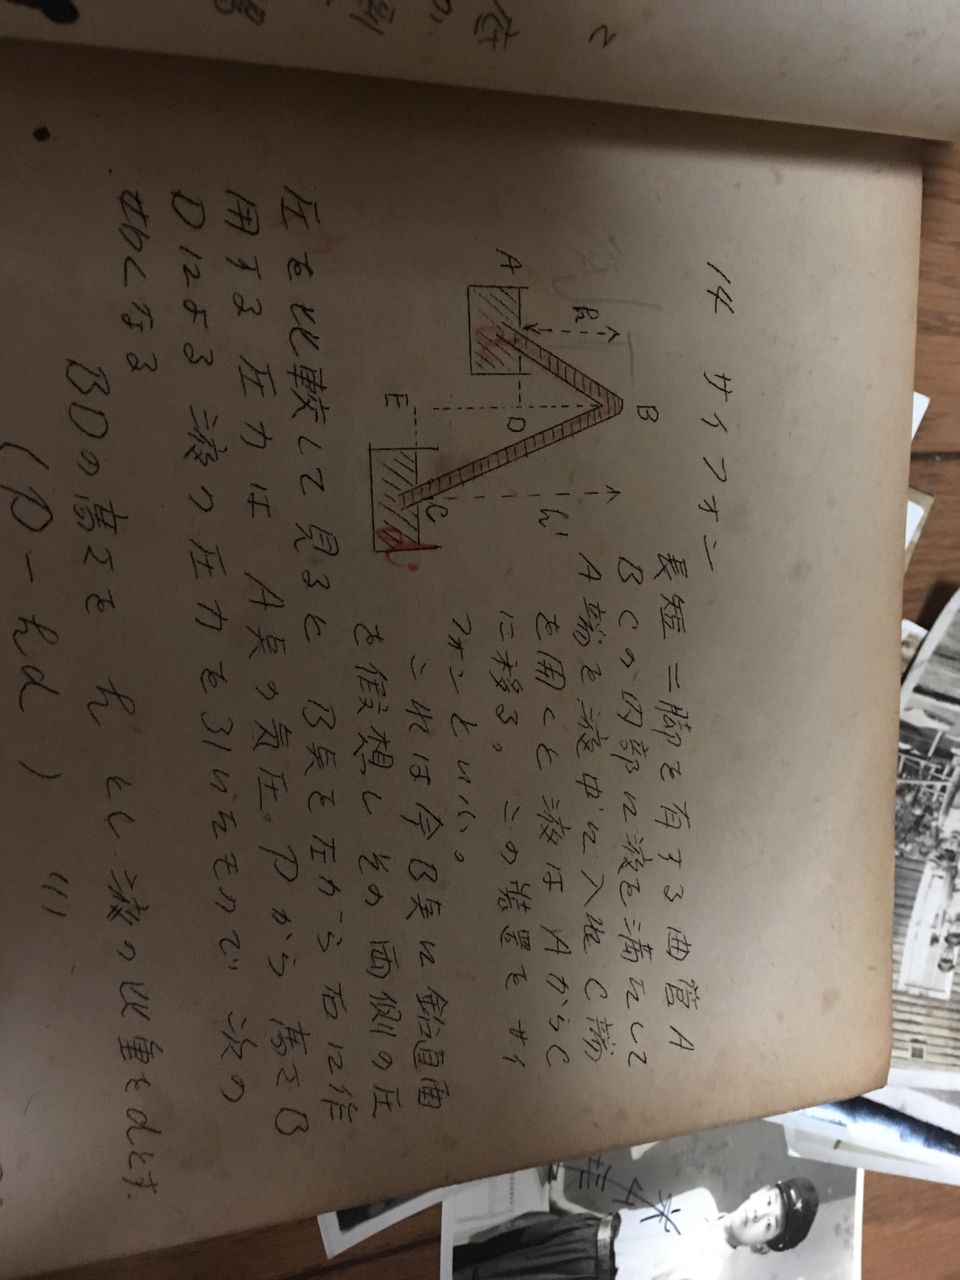 14 サイフォン
長短二脚を有する曲管A
BCの内部に液を満たして
A端を液中に入れC端
を開くと液はAからC
に移る。この装置をサイ
フォンといふ。
これは今B点に鉛直面
を假想しその両側の圧
圧を比較して見ると B点を左から右に作
用する圧力は A点の気圧。Pから 高さB
Dによる液の圧力を引いたもので 次の
如くなる
BDの高さを h とし液の比重をdとす.
(P-hd) (1)
A
B
C
D
E
h
h'
d